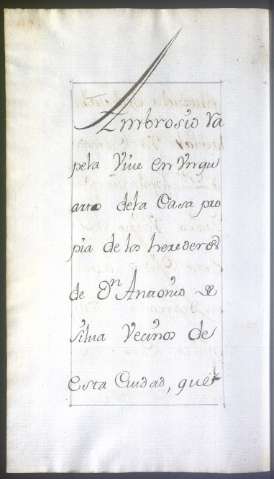 Ambrosio Va
pela Vive en Vnqu
arto dela Casa pro
pia de los herederos
de Dn Antonio de
silva Vecinos de
esta Ciudad, que